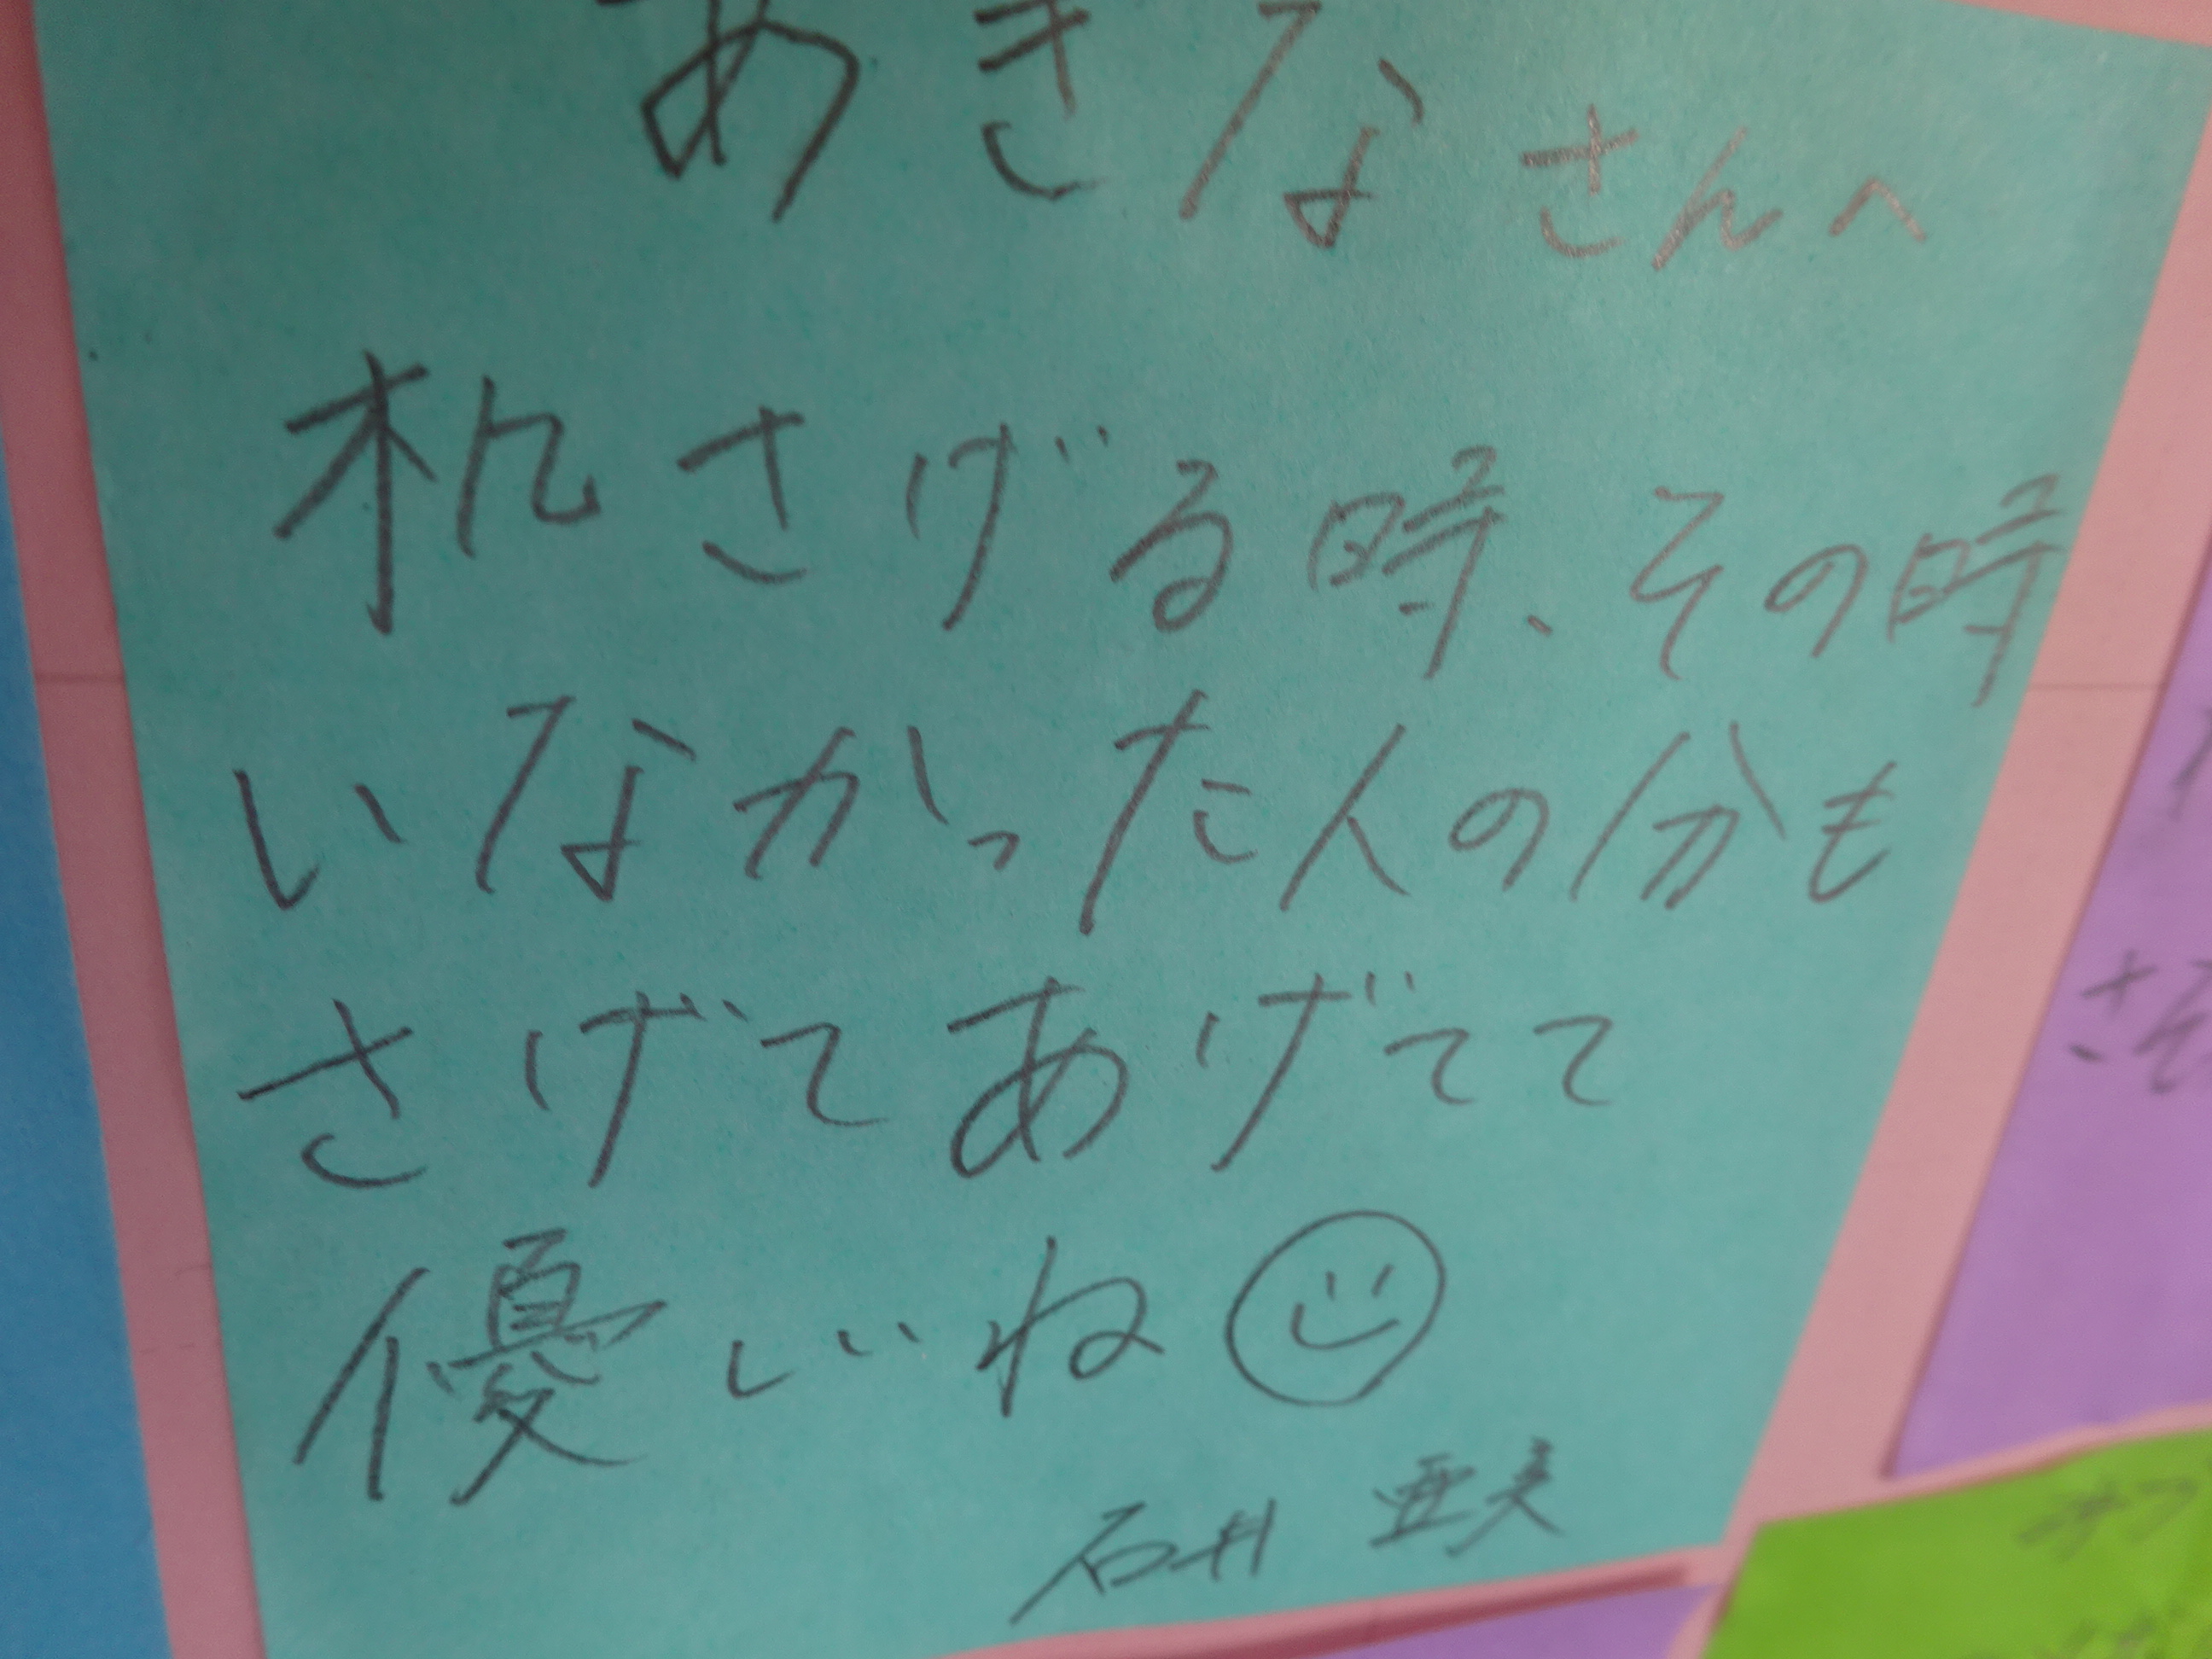 あきなさんへ
机さげる時、その時
いなかった人の分も
さげてあげてて
優しいね
石井 亜実